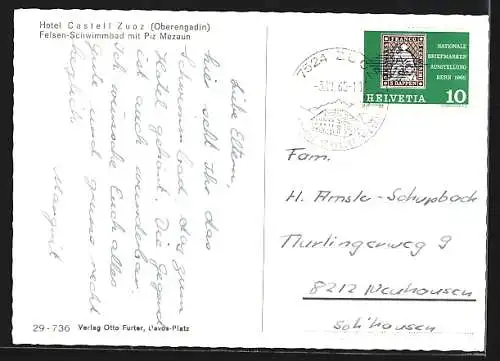 Hotel Castell Zuoz (Oberengadin)
Felsen-Schwimmbad mit Piz Mezaun
Liebe Eltern,
hier seht Ihr das
Schwimmbad, das zum
Hotel gehört. Die Gegend
ist auch wunderbar.
Ich wünsche Euch alles
Gute und grüsse recht
herzlich
Margrit
29-736 Verlag Otto Furter, Davos-Platz
7524 ZUOZ
HELVETIA
FRANCO
NATIONALE
BRIEFMARKEN-
AUSSTELLUNG
BERN 1965
10
Fam.
H. Amsler-Schupbach
Flurlingerweg 9
8212 Neuhausen
Schhausen